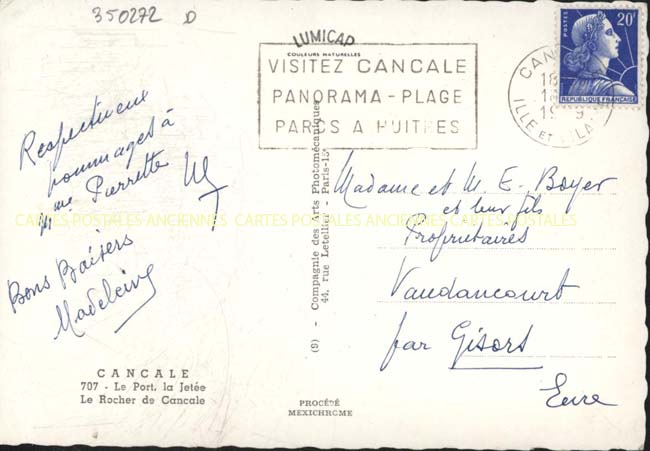 350272 D
LUMICAP
COULEURS NATURELLES
VISITEZ CANCALE
PANORAMA - PLAGE
PARCS A HUITRES
CAN
18
19 9
ILLE ET VILAINE
POSTES 20F
REPUBLIQUE FRANÇAISE
Respectueux
hommages à
Me Pierrette
Bons Baisers
Madeleine
CANCALE
707 - Le Port, la Jetée
Le Rocher de Cancale
(S) - Compagnie des Arts Photomécaniques
44, rue Letellier - Paris-15
PROCÉDÉ
MEXICHROME
Madame et M. E. Boyer
et leur fils
Propriétaires
Vaudancourt
par Gisors
Eure
CARTES POSTALES ANCIENNES CARTES POSTALES ANCIENNES CARTES POSTALES